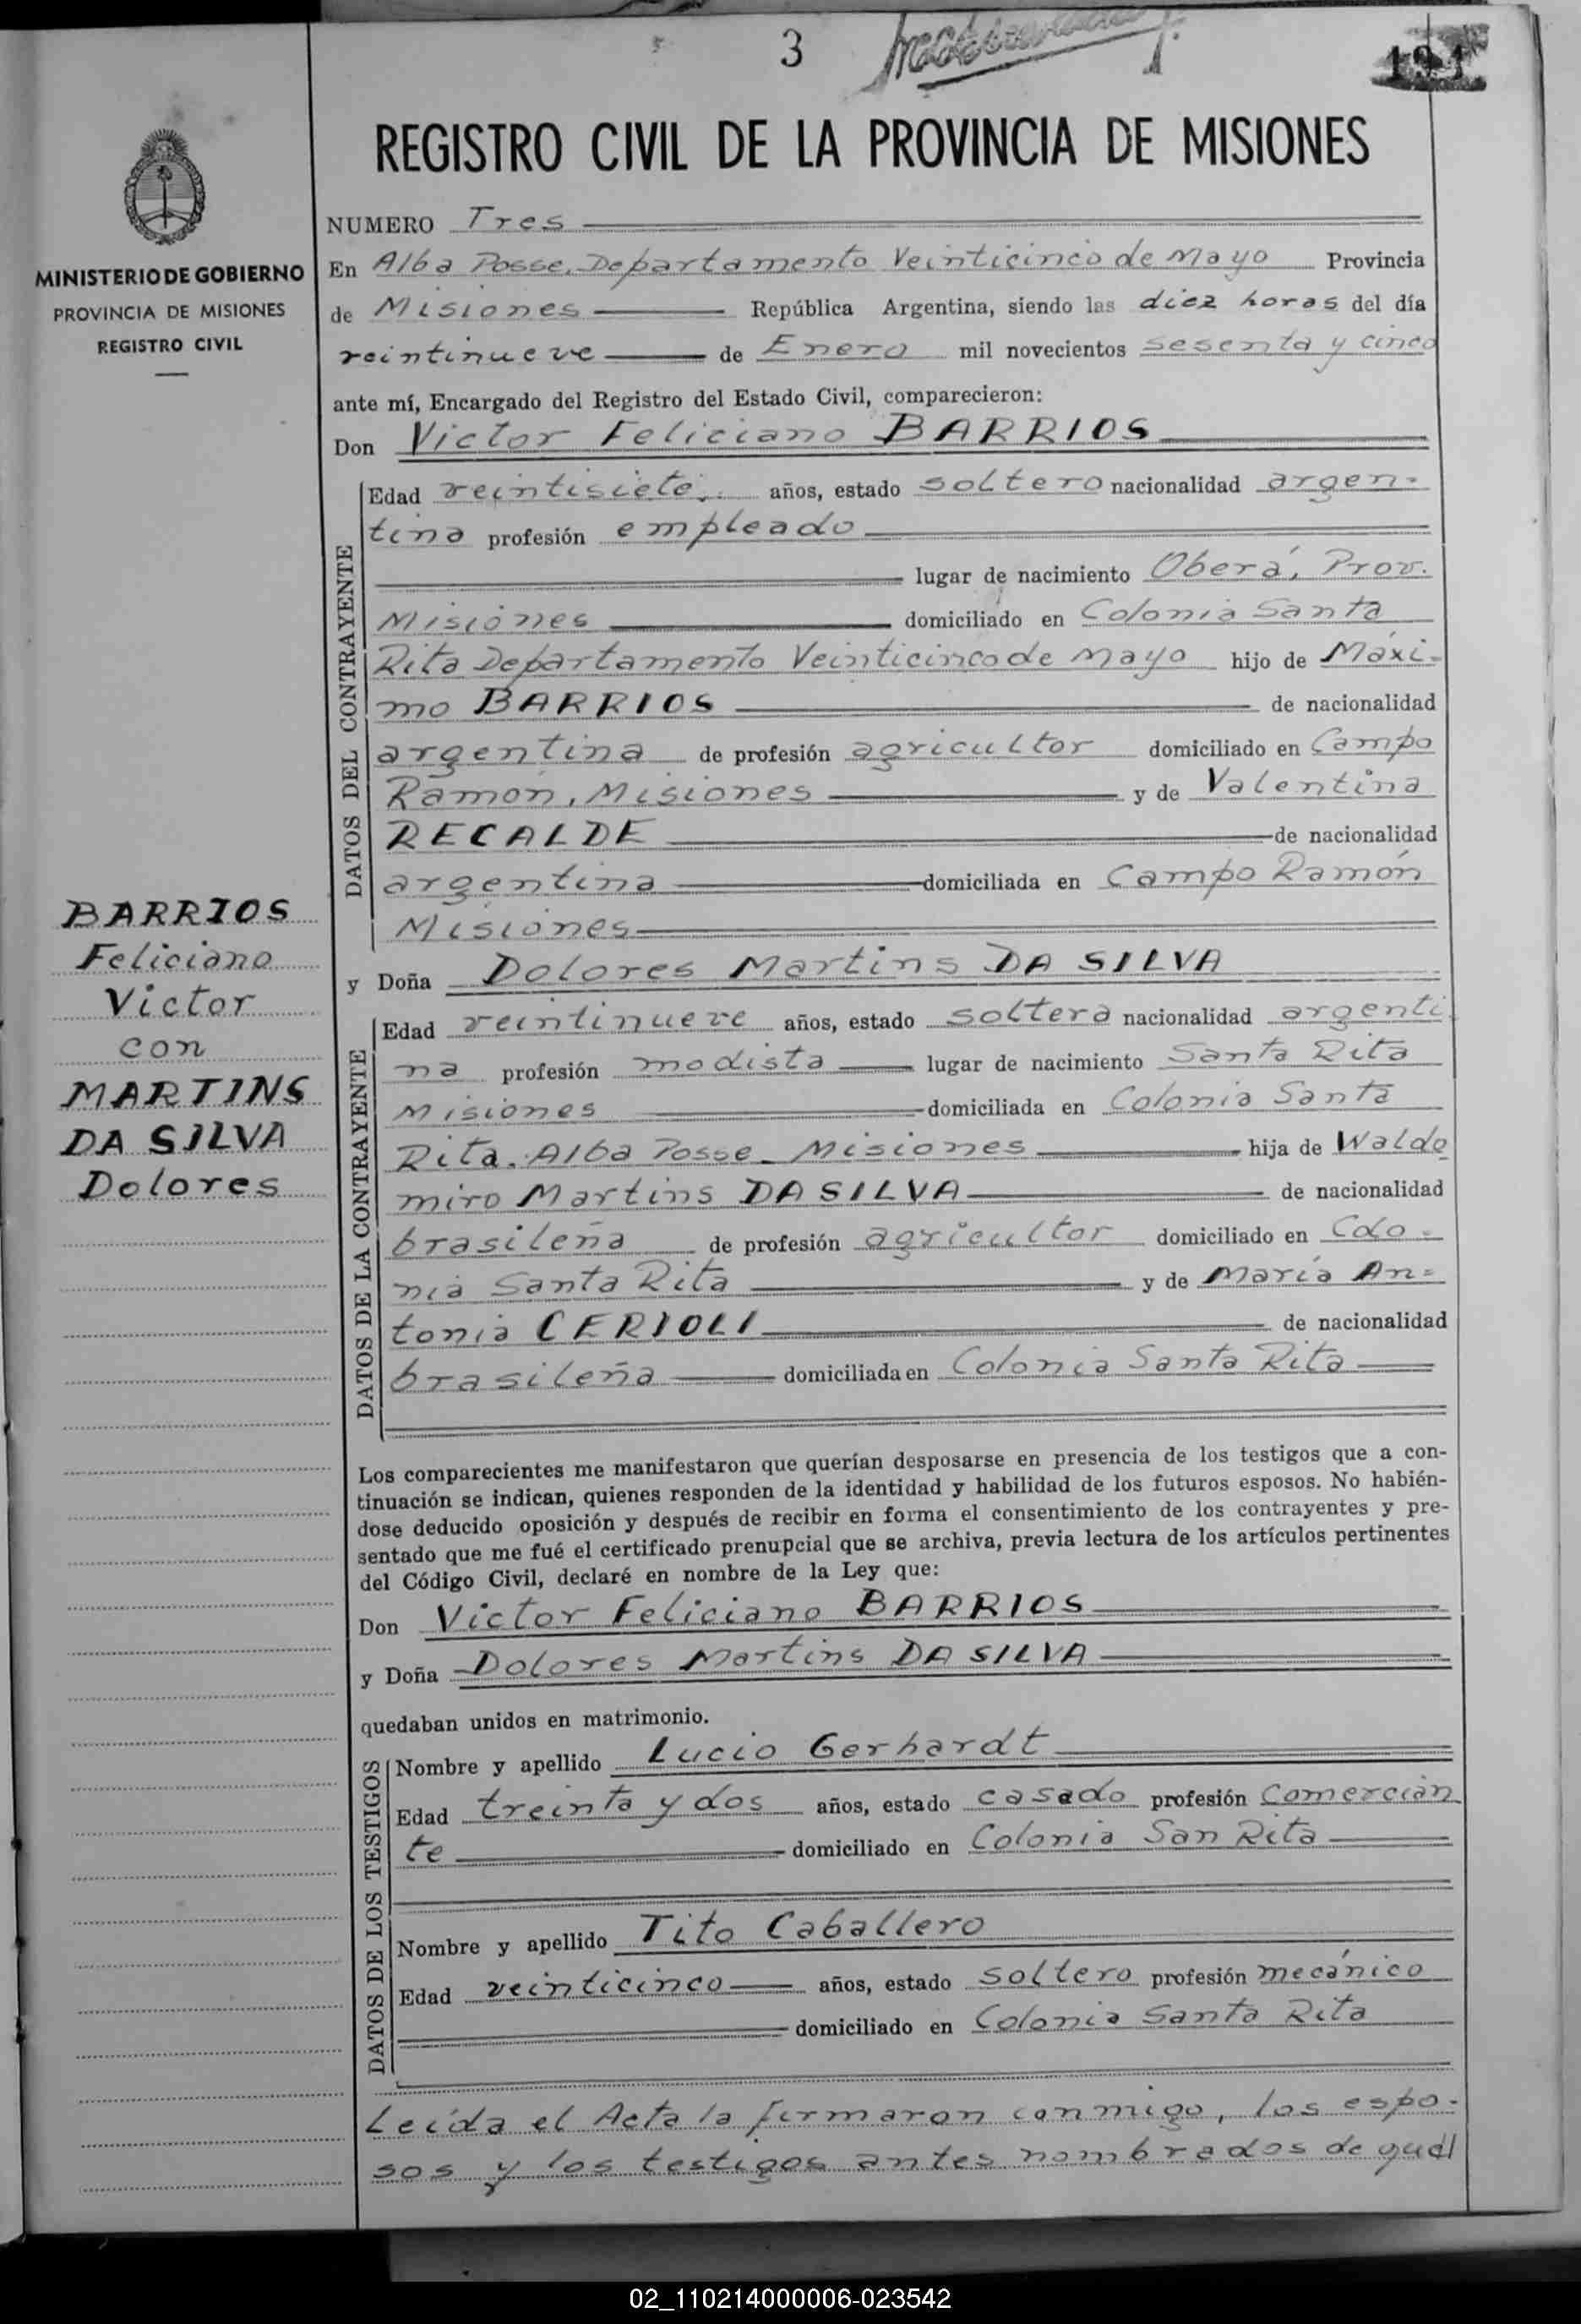 3
191
REGISTRO CIVIL DE LA PROVINCIA DE MISIONES
MINISTERIO DE GOBIERNO
PROVINCIA DE MISIONES
REGISTRO CIVIL
BARRIOS
Feliciano
Victor
con
MARTINS
DA SILVA
Dolores
NUMERO Tres
En Alba Posse, Departamento Veinticinco de Mayo Provincia
de Misiones República Argentina, siendo las diez horas del día
veintinueve de Enero mil novecientos sesenta y cinco
ante mí, Encargado del Registro del Estado Civil, comparecieron:
Don Victor Feliciano BARRIOS
DATOS DEL CONTRAYENTE
Edad veintisiete años, estado soltero nacionalidad argen-
tina profesión empleado
lugar de nacimiento Oberá, Prov.
Misiones domiciliado en Colonia Santa
Rita Departamento Veinticinco de Mayo hijo de Máxi-
mo BARRIOS de nacionalidad
argentina de profesión agricultor domiciliado en Campo
Ramón, Misiones y de Valentina
RECALDE de nacionalidad
argentina domiciliada en Campo Ramón
Misiones
y Doña Dolores Martins DA SILVA
DATOS DE LA CONTRAYENTE
Edad veintinueve años, estado soltera nacionalidad argenti
na profesión modista lugar de nacimiento Santa Rita
Misiones domiciliada en Colonia Santa
Rita. Alba Posse - Misiones hija de Waldo
miro Martins DA SILVA de nacionalidad
brasileña de profesión agricultor domiciliado en Colo-
nia Santa Rita y de María An-
tonia CERIOLI de nacionalidad
brasileña domiciliada en Colonia Santa Rita
Los comparecientes me manifestaron que querían desposarse en presencia de los testigos que a con-
tinuación se indican, quienes responden de la identidad y habilidad de los futuros esposos. No habién-
dose deducido oposición y después de recibir en forma el consentimiento de los contrayentes y pre-
sentado que me fué el certificado prenupcial que se archiva, previa lectura de los artículos pertinentes
del Código Civil, declaré en nombre de la Ley que:
Don Victor Feliciano BARRIOS
y Doña Dolores Martins DA SILVA
quedaban unidos en matrimonio.
DATOS DE LOS TESTIGOS
Nombre y apellido Lucio Gerhardt
Edad treinta y dos años, estado casado profesión Comercian
te domiciliado en Colonia San Rita
Nombre y apellido Tito Caballero
Edad veinticinco años, estado soltero profesión mecánico
domiciliado en Colonia Santa Rita
Leída el Acta la firmaron conmigo, los espo-
sos y los testigos antes nombrados de qual
02_110214000006-023542